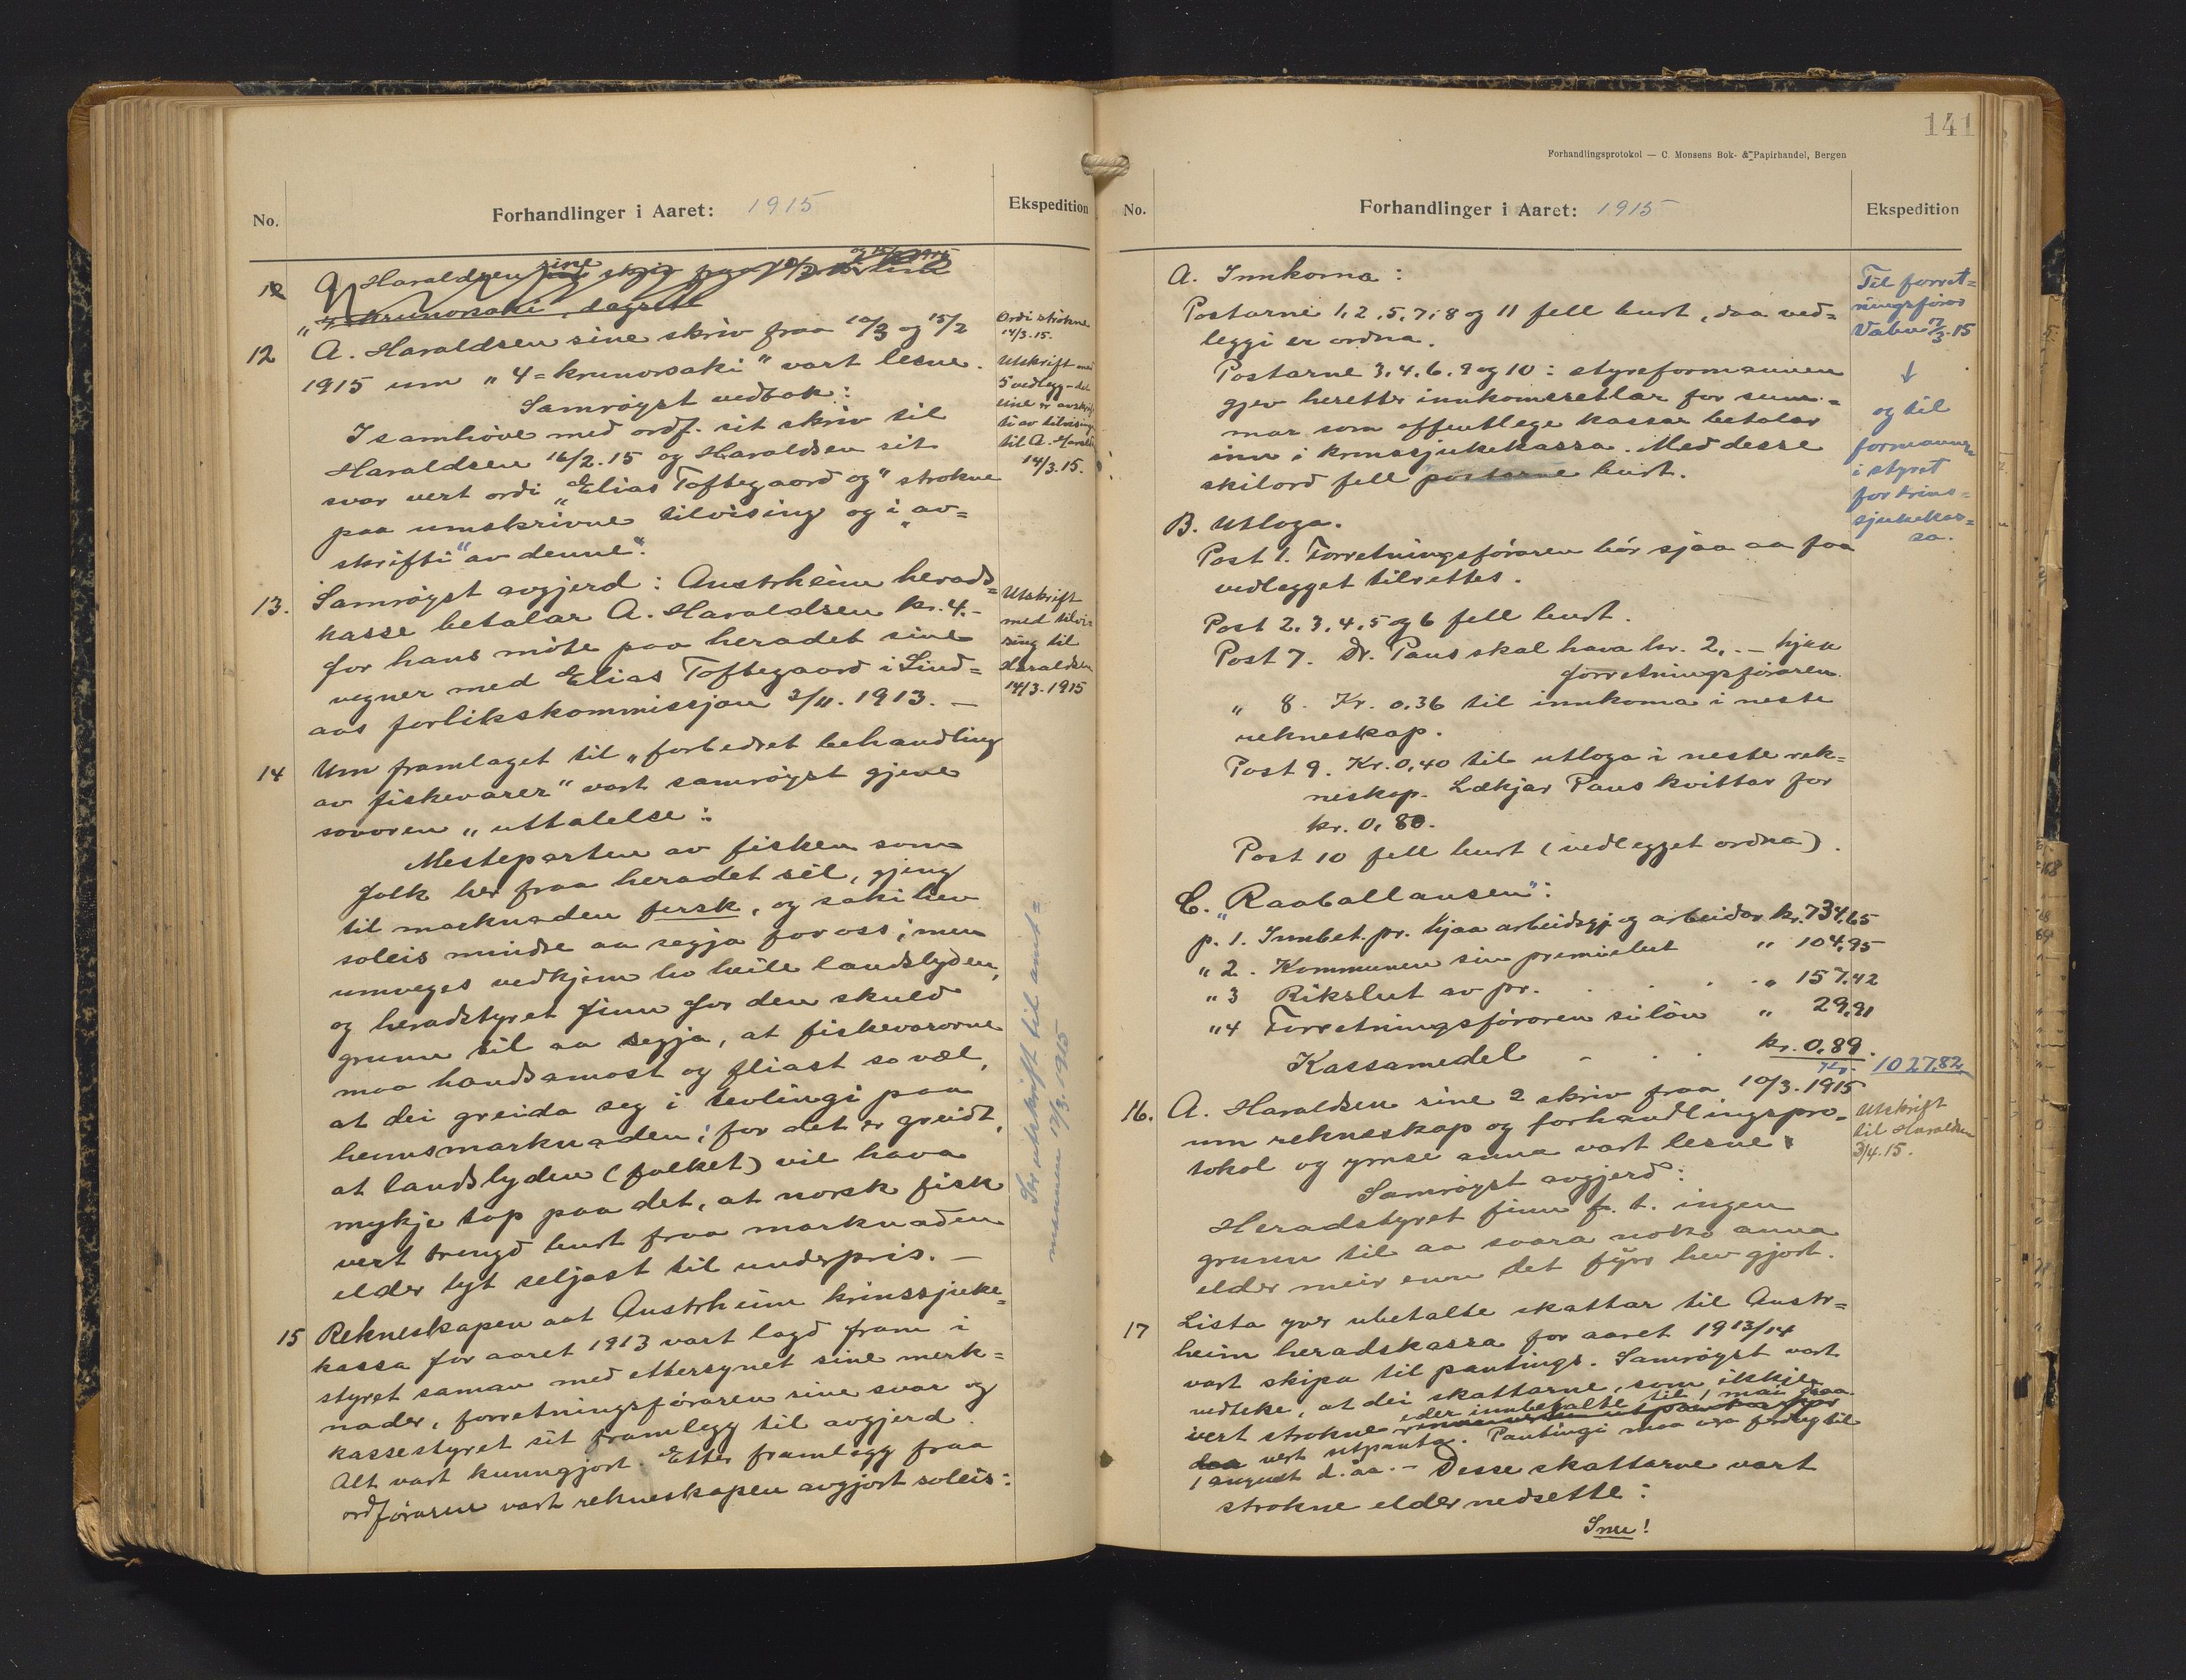 No.
Forhandlinger i Aaret: 1915
Ekspedition
12
A. Haraldsen sine skriv fraa 10/3
"4 krunorsaki", dagsett
12
A. Haraldsen sine skriv fraa 10/3 og 15/2
1915 um "4=krunorsaki" vart lesne.
Samrøyst vedtok:
I samhøve med ordf. sit skriv til
Haraldsen 16/2.15 og Haraldsen sit
svar vert ordi "Elias Toftegaard og" strokne
paa umskrivne tilvising og i "av=
skrifti" av denne".
Ordi strokne
14/3.15.
Utskrift med
5 vedlegg - det
eine er avskrif
ti av tilvisingi
til A. Harald
14/3.15.
13.
Samrøyst avgjerd: Austrheim herads=
kasse betalar A. Haraldsen kr. 4.-
for hans møte paa heradet sine
vegner med Elias Toftegaard i Lind=
aas forlikskommissjon 3/11. 1913. —
Utskrift
med tilvi=
sing til
Haraldsen
14/3-1915
14
Um framlaget til "forbedret behandling
av fiskevarer" vart samrøyst gjeve
sovoren "uttalelse":
Mesteparten av fisken som
folk her fraa heradet sel, gjeng
til marknaden fersk, og saki hev
soleis mindre aa segja for oss; men
umveges vedkjem ho heile landslyden,
og heradstyret finn for den skuld
grunn til aa segja, at fiskevarorne
maa handsamast og fliast so væl,
at dei greida seg i tevlingi paa
heimsmarknaden; for det er greidt,
at landslyden (folket) vil hava
mykje tap paa det, at norsk fisk
vert trengd burt fraa marknaden
elder lyt seljast til underpris. —
Ser utskrift til amt=
mannen 17/3.1915
15
Rekneskapen aat Austrheim krinssjuke=
kassa for aaret 1913 vart lagd fram i
styret saman med ettersynet sine merk=
nader, forretningsføraren sine svar og
kassestyret sit framlegg til avgjerd.
Alt vart kunngjort. Etter framlegg fraa
ordføraren vart rekneskapen avgjort soleis:
141
Forhandlingsprotokol — C. Monsens Bok- & Papirhandel, Bergen
No.
Forhandlinger i Aaret: 1915
Ekspedition
A. Innkoma:
Postarne 1, 2, 5, 7, 8 og 11 fell burt, daa ved=
leggi er ordna.
Postarne 3, 4, 6, 9 og 10: styreformannen
gjev heretter innkomesetlar for sum=
mar som offentlege kassar betalar
inn i krinssjukekassa. Med desse
skilord fell postarne burt.
Til forret=
ningsførar
Vabø 17/3.15
↓
og til
formannen
i styret
for krins=
sjukekas=
sa.
B. Utloga.
Post 1. Forretningsføraren bør sjaa aa faa
vedlegget tilrettes.
Post 2, 3, 4, 5 og 6 fell burt.
Post 7. Dr. Paus skal hava kr. 2,.- hjaa
forretningsføraren.
" 8. Kr. 0.36 til innkoma i neste
rekneskap.
Post 9. Kr. 0,40 til utloga i neste rek=
neskap. Lækjar Paus kvittar for
kr. 0,80.
Post 10 fell burt (vedlegget ordna).
C. "Raaballansen":
p. 1. Innbet. pr. hjaa arbeidsgj. og arbeidar kr. 734,65
" 2. Kommunen sin premielut " 104,95
" 3 Rikslut av pr. . . . . " 157,42
" 4 Forretningsføraren si løn " 29,91
Kassamedel - . . kr. 0,89.
Kr. 1027,82
16.
A. Haraldsen sine 2 skriv fraa 10/3.1915
um rekneskap og forhandlingspro=
tokol og ymse anna vart lesne.
Samrøyst avgjerd:
Heradstyret finn f. t. ingen
grunn til aa svara noko anna
elder meir enn det fyrr hev gjort.
Utskrift
til Haraldsen
3/4.15.
17
Lista yver ubetalte skattar til Austr=
heim heradskassa for aaret 1913/14
vart skipa til pantings. Samrøyst vart
vedteke, at dei skattarne, som ikkje
vert strokne elder innbetalte til 1 mai
daa vert utpanta. Pantingi maa vera ferdug til
1 august d. aa. - Desse skattarne vart
strokne elder nedsette:
Snu!